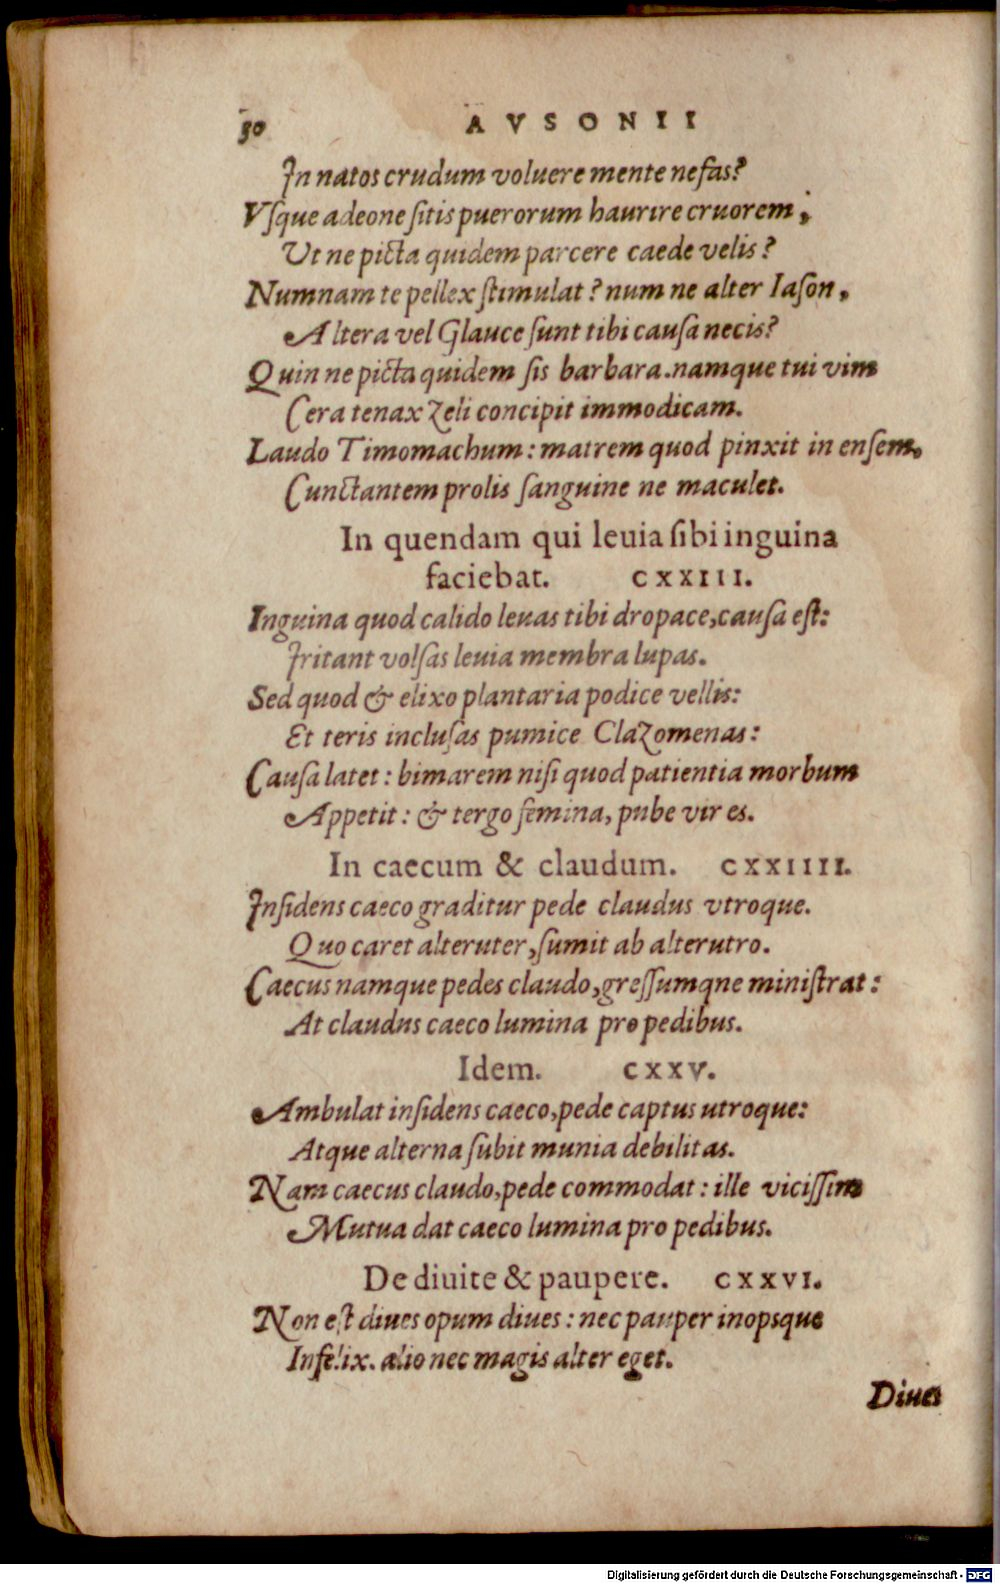 30 AVSONII
In natos crudum voluere mente nefas?
Vſque adeone ſitis puerorum haurire cruorem,
Ut ne picta quidem parcere caede velis?
Numnam te pellex ſtimulat? num ne alter Iaſon,
Altera vel Glauce ſunt tibi cauſa necis?
Quin ne picta quidem ſis barbara. namque tui vim
Cera tenax zeli concipit immodicam.
Laudo Timomachum: matrem quod pinxit in enſem,
Cunctantem prolis ſanguine ne maculet.
In quendam qui leuia ſibi inguina
faciebat. CXXIII.
Inguina quod calido leuas tibi dropace, cauſa eſt:
Irritant volſas leuia membra lupas.
Sed quod & elixo plantaria podice vellis:
Et teris incluſas pumice Clazomenas:
Cauſa latet: bimarem niſi quod patientia morbum
Appetit: & tergo femina, pube vir es.
In caecum & claudum. CXXIIII.
Inſidens caeco graditur pede claudus vtroque.
Quo caret alteruter, ſumit ab alterutro.
Caecus namque pedes claudo, greſſumqne miniſtrat:
At claudus caeco lumina pro pedibus.
Idem. CXXV.
Ambulat inſidens caeco, pede captus utroque:
Atque alterna ſubit munia debilitas.
Nam caecus claudo, pede commodat: ille viciſſim
Mutua dat caeco lumina pro pedibus.
De diuite & paupere. CXXVI.
Non eſt diues opum diues: nec pauper inopsque
Infelix. alio nec magis alter eget.
Diues
Digitalisierung gefördert durch die Deutsche Forschungsgemeinschaft - DFG